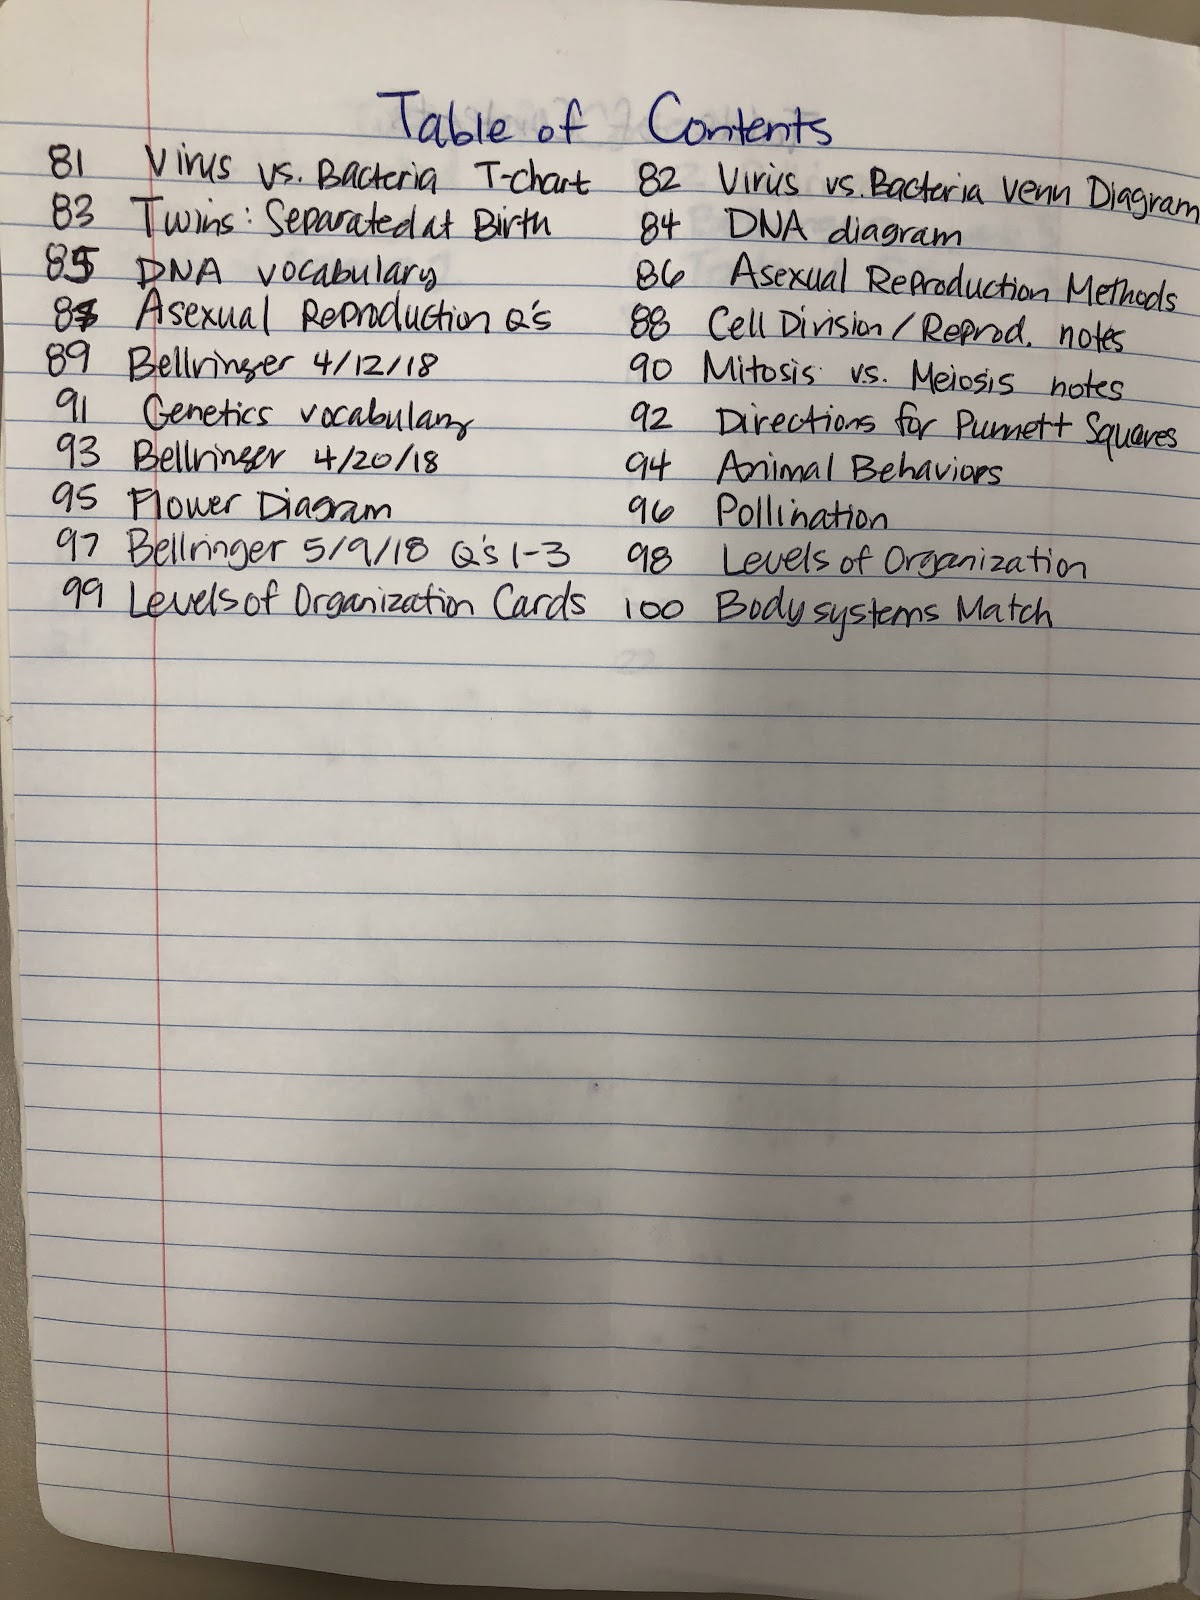 Table of Contents
81 Virus vs. Bacteria T-chart 82 Virus vs. Bacteria Venn Diagram
83 Twins: Separated at Birth 84 DNA diagram
85 DNA vocabulary 86 Asexual Reproduction Methods
87 Asexual Reproduction Q's 88 Cell Division/Reprod. notes
89 Bellringer 4/12/18 90 Mitosis vs. Meiosis notes
91 Genetics vocabulary 92 Directions for Punnett Squares
93 Bellringer 4/20/18 94 Animal Behaviors
95 Flower Diagram 96 Pollination
97 Bellringer 5/9/18 Q's 1-3 98 Levels of Organization
99 Levels of Organization Cards 100 Body systems Match